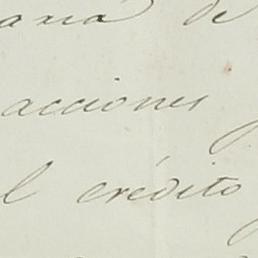 aria de
acciones
el crédito